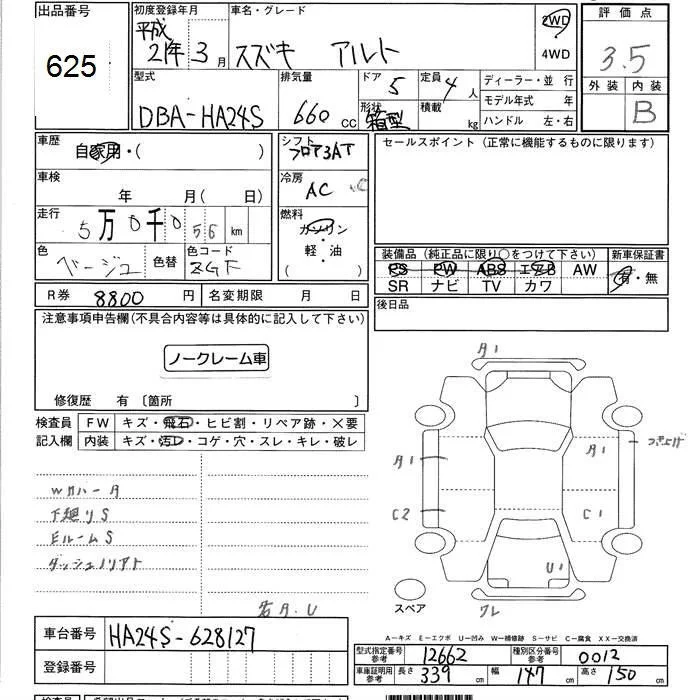 出品番号
625
初度登録年月
平成
21年 3月
車名・グレード
スズキ アルト
2WD
4WD
評価点
3.5
外装 内装
B
型式
DBA-HA24S
排気量
660 CC
ドア 5
形状
箱型
定員 4人
積載 kg
ディーラー・並行
モデル年式 年
ハンドル 左・右
車歴
自家用・( )
シフト
フロア3AT
セールスポイント (正常に機能するものに限ります)
車検
年 月(日)
冷房
AC
走行
5万0千056 km
燃料
ガソリン
軽・油
( )
色
ベージュ
色替
色コード
ZGF
装備品 (純正品に限り○をつけて下さい)
PS PW ABS エアB AW
SR ナビ TV カワ
新車保証書
有・無
R券 8800 円
名変期限 月 日
後日品
注意事項申告欄(不具合内容等は具体的に記入して下さい)
ノークレーム車
修復歴 有〔箇所 〕
検査員
記入欄
FW キズ・飛石・ヒビ割・リペア跡・×要
内装 キズ・汚レ・コゲ・穴・スレ・キレ・破レ
Wカバー A
下廻りS
EルームS
ダッシュノリアト
右A.U
A1
A1
A1
つき上げ
C2
C1
U1
ワレ
スペア
車台番号 HA24S-628127
登録番号
A―キズ E―エクボ U―凹み W―補修跡 S―サビ C―腐食 XX―交換済
型式指定番号
参考
12662
種別区分番号
参考
0012
車庫証明用
参考
長さ 339 cm
幅 147 cm
高さ 150 cm